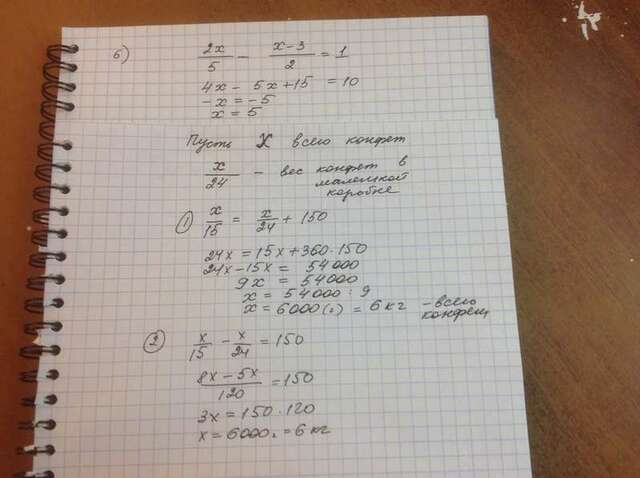 б) 2x/5 - x-3/2 = 1
4x - 5x+15 = 10
-x = -5
x = 5
Пусть X всего конфет
x/24 - вес конфет в маленькой коробке
① x/15 = x/24 + 150
24x = 15x+360·150
24x-15x = 54000
9x = 54000
x = 54000 : 9
x = 6000(г) = 6 кг - всего конфет
② x/15 - x/24 = 150
8x - 5x/120 = 150
3x = 150·120
x = 6000г = 6 кг